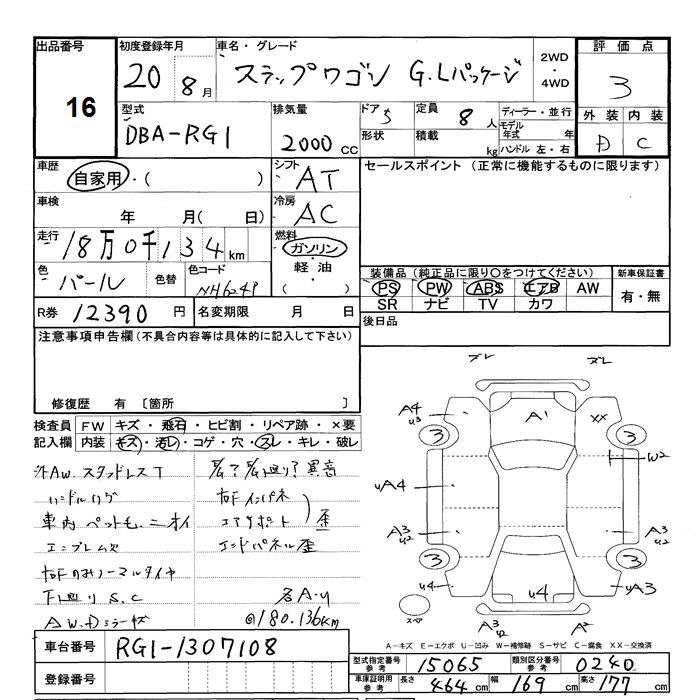 出品番号 初度登録年月 車名・グレード 2WD ・ 4WD 評価点
16 20 8月 ステップワゴン G.Lパッケージ 3
型式 排気量 ドア 5 定員 8人 ディーラー・並行 外装 内装
DBA-RG1 2000 CC 形状 積載 kg モデル年式 年 D C
ハンドル 左・右
車歴 自家用・( ) シフト AT セールスポイント (正常に機能するものに限ります)
車検 年 月( 日) 冷房 AC
走行 18万0千134km 燃料 ガソリン・軽油・( )
色 パール 色替 色コード 装備品 (純正品に限り〇をつけてください) 新車保証書
PS PW ABS エアB AW 有・無
SR ナビ TV カワ
R券 12390 円 名変期限 月 日 後日品
注意事項申告欄 (不具合内容等は具体的に記入して下さい)
修復歴 有 〔箇所 〕
検査員記入欄 FW キズ・飛石・ヒビ割・リペア跡・×要
内装 キズ・汚レ・コゲ・穴・スレ・キレ・破レ
外AW.スタッドレスT
ハンドル
車内 ペット毛.ニオイ
エンブレム欠
右Fのみノーマルタイヤ
下廻りS.C
A W.Dミラー
異音
右Fインパネ
コアサポート 歪
エンドパネル歪
各A.U
@180.136km
ズレ ズレ
A4 U3 A1 XX
3 3
UA4 W2
A3 U2 A3 U2
3 3
U4 U4 UA3
スペア A3 U2 A2
A-キズ E-エクボ U-凹み W-補修跡 S-サビ C-腐食 XX-交換済
車台番号 RG1-1307108
登録番号
型式指定番号 参考 15065 類別区分番号 参考 0240
車庫証明用 参考 長さ 464 cm 幅 169 cm 高さ 177 cm